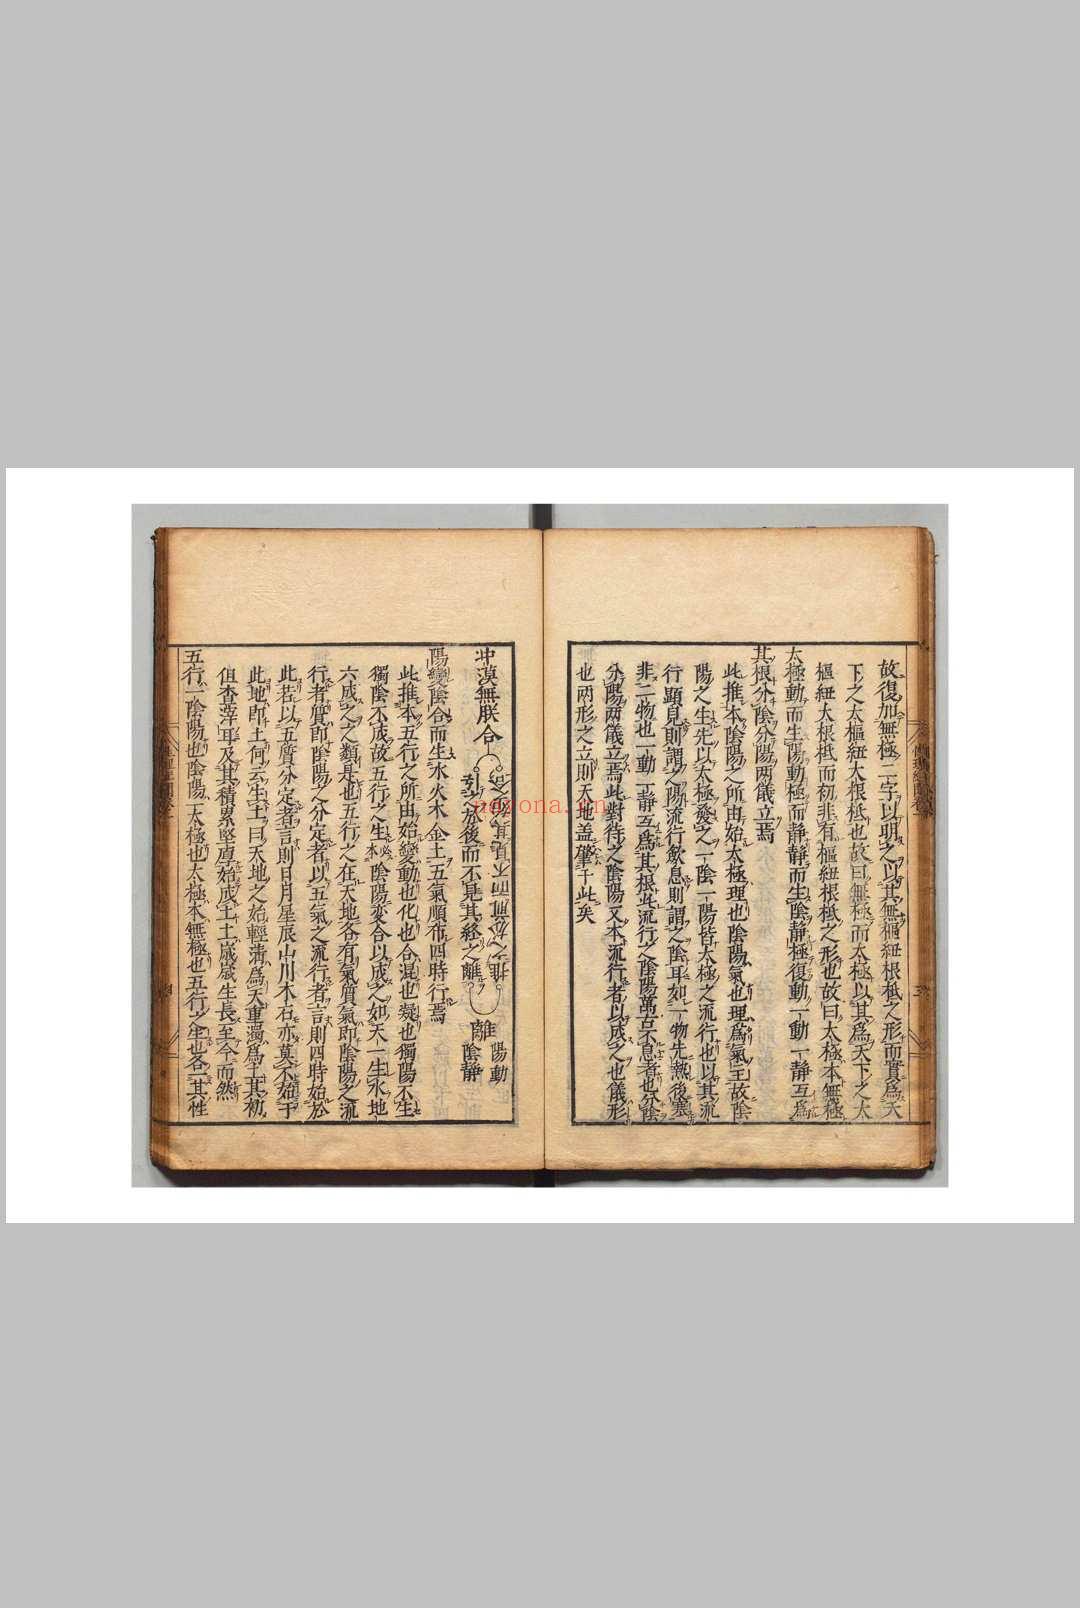 故復加無極二字以明之以其無樞紐根柢之形而實為天
下之太樞紐大根柢也故曰無極而太極以其為天下之太
樞紐大根柢而初非有樞紐根柢之形也故曰太極本無極
太極動而生陽動極而静静而生陰静極復動一動一静互為
其根分陰分陽兩儀立焉
此推本陰陽之所由始太極理也陰陽氣也理為氣主故陰
陽之生先以太極發之一陰一陽皆太極之流行也以其流
行顯見則謂之陽流行歛息則謂之陰耳如一物先熱後寒
非二物也一動一静互為其根此流行之陰陽萬古不息者也分陰
分陽兩儀立焉此對待之陰陽又本流行者以成之也儀形
也兩形之立則天地盖肇于此矣
冲漠無朕合
推之於前而不見其始之合
引之於後而不見其終之離
離
陽動
陰静
陽變陰合而生水火木金土五氣順布四時行焉
此推本五行之所由始變動也化也合混也凝也獨陽不生
獨陰不成故五行之生必本陰陽変合以成之如天一生水地
六成之之類是也五行之在天地各有氣質氣即陰陽之流
行者質即陰陽之分定者以五氣之流行者言則四時始於
此若以五質分定者言則日月星辰山川木石亦莫不始于
此地即土何云生土曰天地之始輕清為天重濁為土其初
但查滓耳及其積累堅厚始成土土歲歲生長至今而然
五行一陰陽也陰陽一太極也太極本無極也五行之生也各一其性
nezona.cn